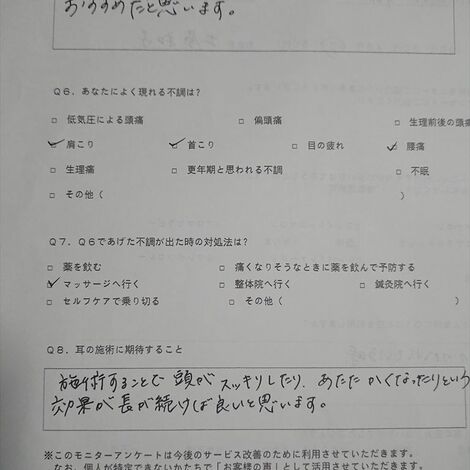 おすすめだと思います。
Q6．あなたによく現れる不調は?
□ 低気圧による頭痛 □ 偏頭痛 □ 生理前後の頭痛
☑ 肩こり ☑ 首こり □ 目の疲れ ☑ 腰痛
□ 生理痛 □ 更年期と思われる不調 □ 不眠
□ その他（ ）
Q7．Q6であげた不調が出た時の対処法は?
□ 薬を飲む □ 痛くなりそうなときに薬を飲んで予防する
☑ マッサージへ行く □ 整体院へ行く □ 鍼灸院へ行く
□ セルフケアで乗り切る □ その他（ ）
Q8．耳の施術に期待すること
施術することで頭がスッキリしたり、あたたかくなったりという
効果が長が続けば良いと思います。
※このモニターアンケートは今後のサービス改善のために利用させていただきます。
なお、個人が特定できないかたちで「お客様の声」として活用させていただきます。